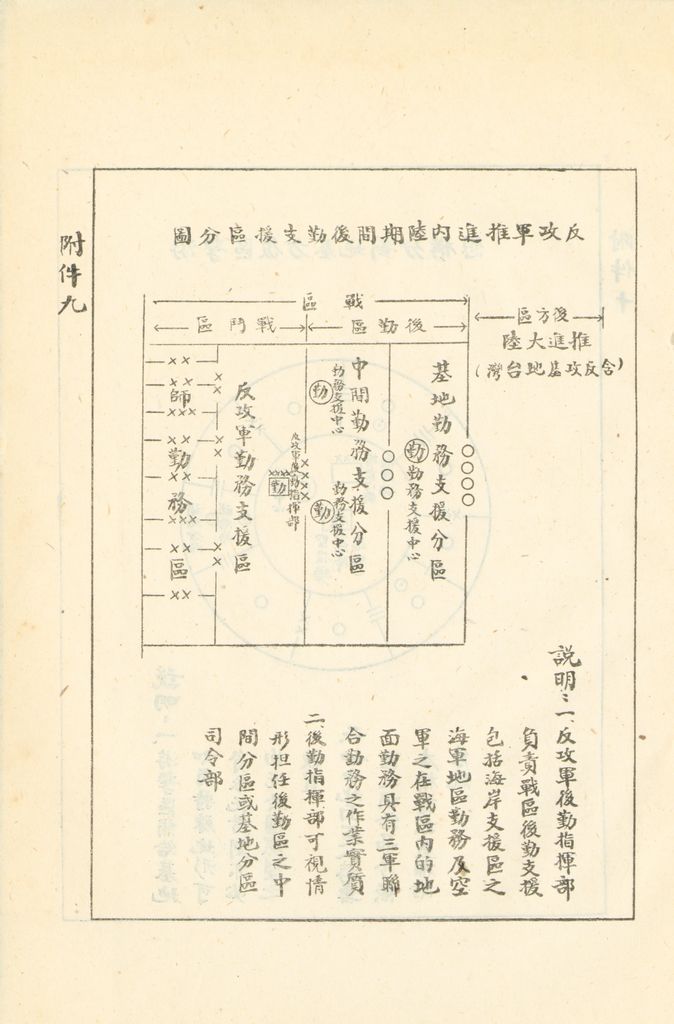 附件九
反攻軍推進內陸期間後勤支援區分圖
後方區
推進大陸
(含反攻基地台灣)
戰區
後勤區
戰鬥區
基地勤務支援分區
勤
勤務支援中心
中間勤務支援分區
勤
勤務支援中心
勤
勤務支援中心
反攻軍後勤指揮部
勤
反攻軍勤務支援區
師勤務區
說明：一、反攻軍後勤指揮部
負責戰區後勤支援
包括海岸支援區之
海軍地區勤務及空
軍之在戰區內的地
面勤務具有三軍聯
合勤務之作業實質
二、後勤指揮部可視情
形担任後勤區之中
間分區或基地分區
司令部